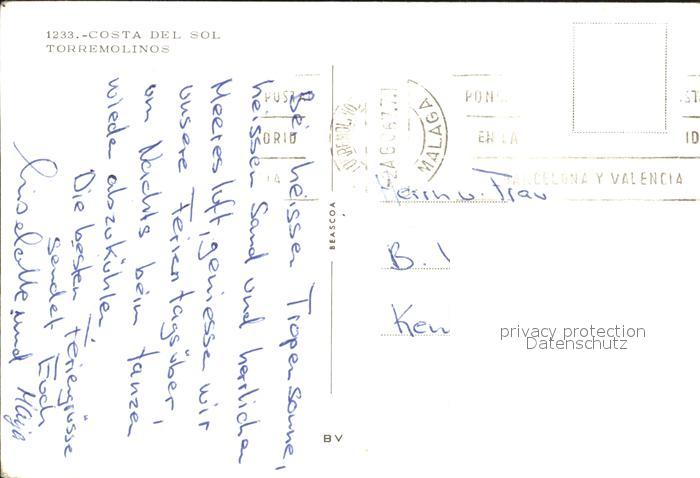 1233.-COSTA DEL SOL
TORREMOLINOS
Bei heissen Tropensonne,
heissen Sand und herrlicher
Meeresluft, geniessen wir
unsere Ferien tagsüber,
um Nachts beim tanzen
wieder abzukühlen
Die besten Feriengrüsse
sendet Euch
Liselotte und Maja
BEASCOA
BV
MALAGA
PON
EN LA
BARCELONA Y VALENCIA
Herrn u. Frau
B.
Ken
privacy protection
Datenschutz